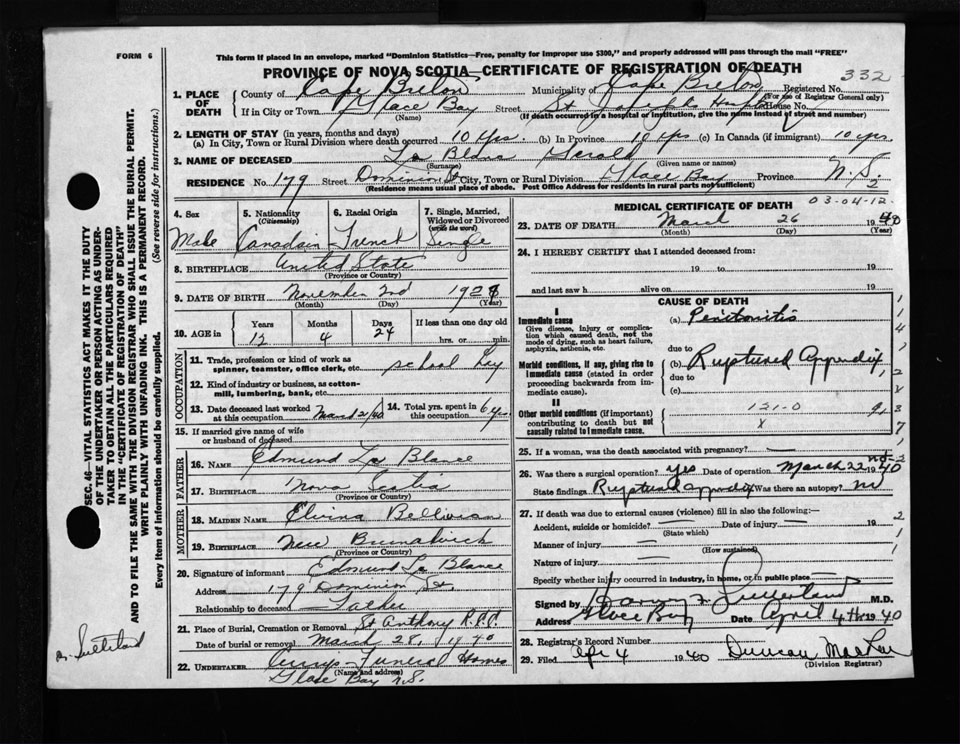 FORM 6
This form if placed in an envelope, marked "Dominion Statistics—Free, penalty for improper use $300," and properly addressed will pass through the mail "FREE"
PROVINCE OF NOVA SCOTIA—CERTIFICATE OF REGISTRATION OF DEATH
332
1. PLACE OF DEATH
County of Cape Breton Municipality of Cape Breton Registered No.
(For use of Registrar General only)
If in City or Town Glace Bay Street St House No.
(Name) (If death occurred in a hospital or institution, give the name instead of street and number)
2. LENGTH OF STAY (in years, months and days)
(a) In City, Town or Rural Division where death occurred 10 Yrs. (b) In Province 10 Yrs (c) In Canada (if immigrant) 10 yrs
3. NAME OF DECEASED Le Blanc Gerald
(Surname) (Given name or names)
RESIDENCE No. 179 Street Dominion St City, Town or Rural Division Glace Bay Province N.S.
(Residence means usual place of abode. Post Office Address for residents in rural parts not sufficient)
2
03-04-12
4. Sex
Male
5. Nationality (Citizenship)
Canadain
6. Racial Origin
French
7. Single, Married, Widowed or Divorced (write the word)
Single
8. BIRTHPLACE United State
(Province or Country)
9. DATE OF BIRTH November 2nd 192
(Month) (Day) (Year)
10. AGE in
Years Months Days If less than one day old
12 4 24 hrs. or min.
OCCUPATION
11. Trade, profession or kind of work as spinner, teamster, office clerk, etc. school boy
12. Kind of industry or business, as cotton-mill, lumbering, bank, etc.
13. Date deceased last worked at this occupation March 21/40
14. Total yrs. spent in this occupation 6 yrs
15. If married give name of wife or husband of deceased
FATHER
16. NAME Edmund Le Blance
17. BIRTHPLACE Nova Scotia
(Province or Country)
MOTHER
18. MAIDEN NAME Elvina
19. BIRTHPLACE New Brunswick
(Province or Country)
20. Signature of informant Edmund Le Blance
Address 179 Dominion St.
Relationship to deceased Father
21. Place of Burial, Cremation or Removal St Anthony
Date of burial or removal March 28, 1940
22. UNDERTAKER Funeral Homes
(Name and address)
Glace Bay N.S.
MEDICAL CERTIFICATE OF DEATH
23. DATE OF DEATH March 26 1940
(Month) (Day) (Year)
24. I HEREBY CERTIFY that I attended deceased from:
19 to 19
and last saw h alive on 19
CAUSE OF DEATH
I
Immediate cause
Give disease, injury or complication which caused death, not the mode of dying, such as heart failure, asphyxia, asthenia, etc.
(a) Peritonitis
due to
Morbid conditions, if any, giving rise to immediate cause (stated in order proceeding backwards from immediate cause).
(b) Ruptured Appendix
due to
(c)
II
Other morbid conditions (if important) contributing to death but not causally related to immediate cause.
121.0
x
25. If a woman, was the death associated with pregnancy? —
26. Was there a surgical operation? yes Date of operation March 22 1940
State findings Ruptured appendix Was there an autopsy? no
27. If death was due to external causes (violence) fill in also the following:—
Accident, suicide or homicide? — Date of injury — 19
(State which)
Manner of injury —
(How sustained)
Nature of injury —
Specify whether injury occurred in industry, in home, or in public place —
Signed by Harvey F. Sutherland M.D.
Address Glace Bay Date April 4th 1940
28. Registrar's Record Number
29. Filed Apr 4 1940 Duncan
(Division Registrar)
SEC. 46—VITAL STATISTICS ACT MAKES IT THE DUTY OF THE UNDERTAKER OR PERSON ACTING AS UNDERTAKER TO OBTAIN ALL THE PARTICULARS REQUIRED IN THE "CERTIFICATE OF REGISTRATION OF DEATH" AND TO FILE THE SAME WITH THE DIVISION REGISTRAR WHO SHALL ISSUE THE BURIAL PERMIT.
WRITE PLAINLY WITH UNFADING INK. THIS IS A PERMANENT RECORD.
Every item of information should be carefully supplied. (See reverse side for instructions.)
Sutherland